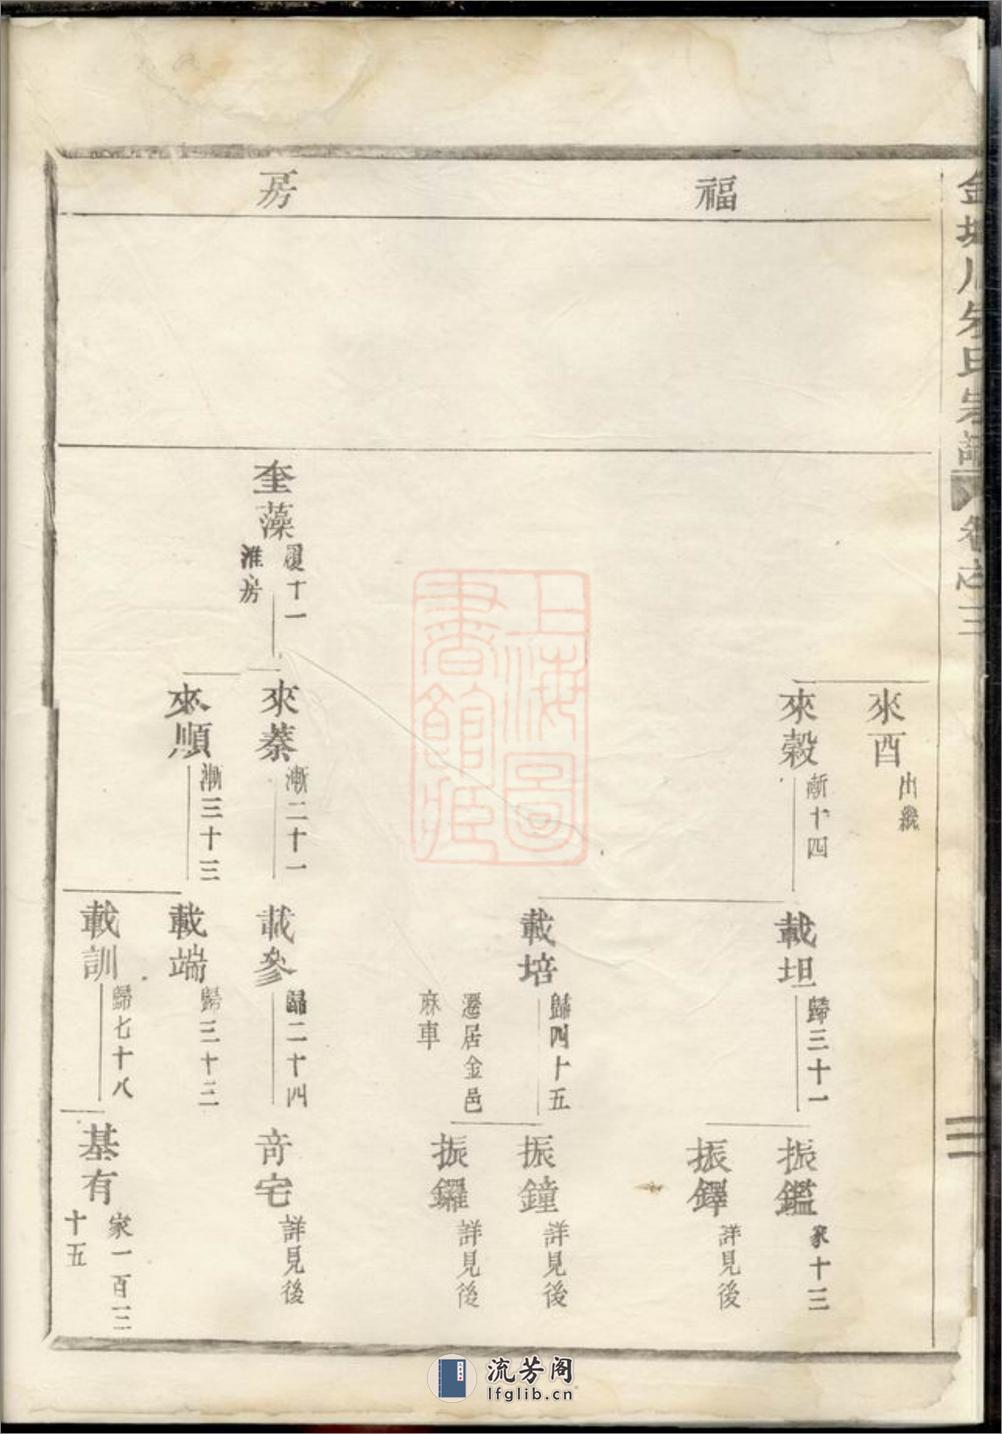 金城川朱氏宗譜 卷之三 二
福
房
來酉 出繼
來穀 漸十四
載坦 歸三十一
振鑑 家十三
振鐸 詳見後
載培 歸四十五
遷居金邑
麻車
振鐘 詳見後
振鑼 詳見後
奎藻 履十一
淮房
來蓁 漸二十一
載參 歸二十四
奇宅 詳見後
來順 漸三十三
載端 歸三十三
載訓 歸七十八
基有 家一百二
十五
上海圖
書館藏
流芳阁
lfglib.cn